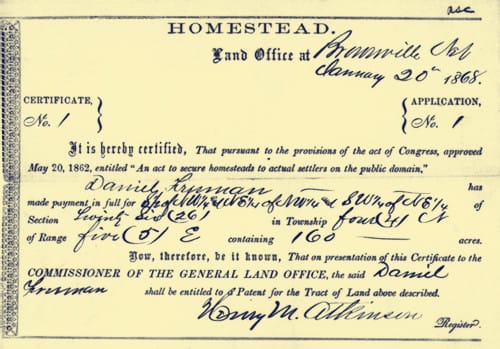 HOMESTEAD.
Land Office at Brownville Neb
January 20th 1868.
CERTIFICATE,
No. 1
APPLICATION,
No. 1
It is hereby certified, That pursuant to the provisions of the act of Congress, approved
May 20, 1862, entitled "An act to secure homesteads to actual settlers on the public domain,"
Daniel Freeman has
made payment in full for S½ of NW¼ & NE¼ of NW¼ & SW¼ of NE¼ of
Section Twenty Six (26) in Township four (4) N
of Range five (5) E containing 160 acres.
Now, therefore, be it known, That on presentation of this Certificate to the
COMMISSIONER OF THE GENERAL LAND OFFICE, the said Daniel
Freeman shall be entitled to a Patent for the Tract of Land above described.
Henry M. Atkinson
Register.